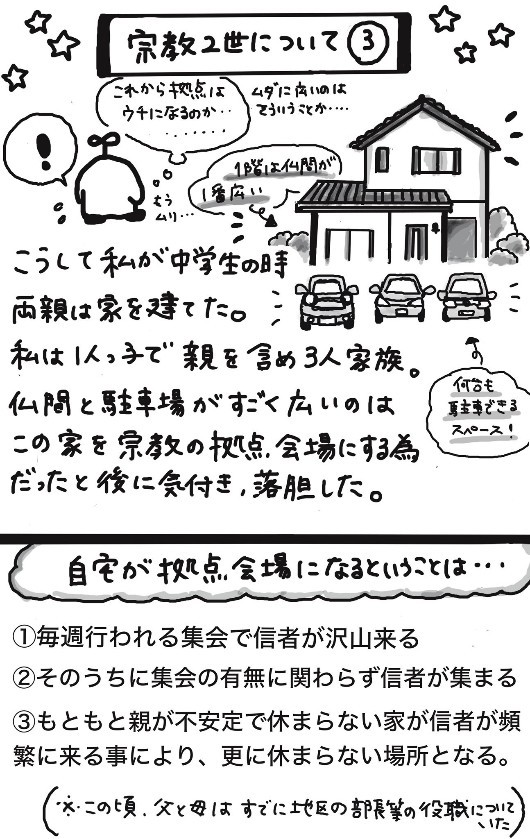 宗教2世について③
これから拠点は
ウチになるのか・・
・・・・・・・
ムダに広いのは
そういうことか・・・・
!
もう
ムリ・・・
1階は仏間が
1番広い
こうして私が中学生の時
両親は家を建てた。
私は1人っ子で親を含め3人家族。
仏間と駐車場がすごく広いのは
この家を宗教の拠点会場にする為
だったと後に気付き、落胆した。
何台も
駐車できる
スペース!
自宅が拠点会場になるということは・・・
①毎週行われる集会で信者が沢山来る
②そのうちに集会の有無に関わらず信者が集まる
③もともと親が不安定で休まらない家が信者が頻
繁に来る事により、更に休まらない場所となる。
(※この頃、父と母はすでに地区の部長等の役職について
いた)